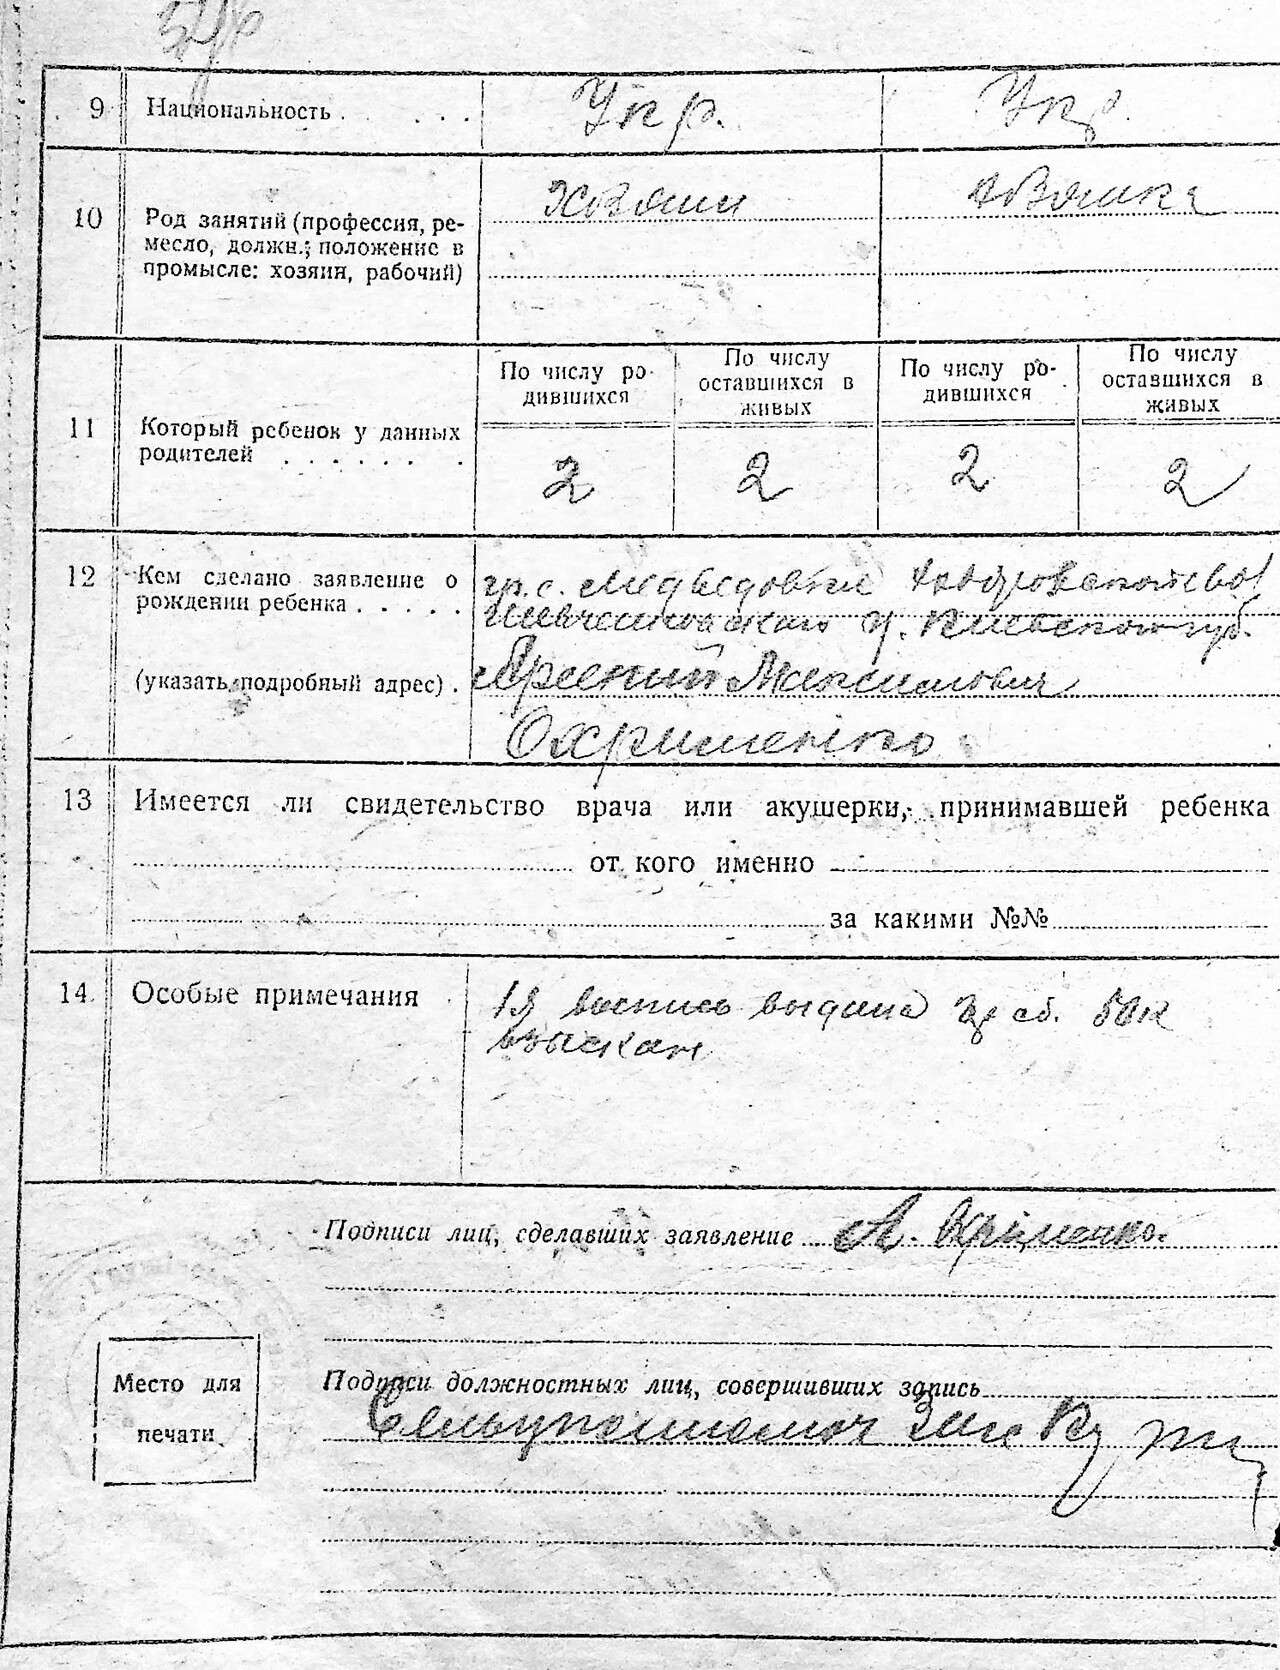 9 Национальность . . . . Укр. Укр.
10 Род занятий (профессия, ре-
месло, должн.; положение в
промысле: хозяин, рабочий)
11 Который ребенок у данных
родителей . . . . . . .
По числу ро-
дившихся
По числу
оставшихся в
живых
По числу ро-
дившихся
По числу
оставшихся в
живых
2 2 2 2
12 Кем сделано заявление о
рождении ребенка . . . . .
(указать подробный адрес) .
гр. с. Медведовки
Шевченковского Киевской губ.
Арсений Максимович
Охрименко
13 Имеется ли свидетельство врача или акушерки, принимавшей ребенка
от кого именно
за какими №№
14 Особые примечания
выпись выдана сб. 50к
взыскан
Подписи лиц, сделавших заявление А. Охріменко.
Место для
печати
Подписи должностных лиц, совершивших запись